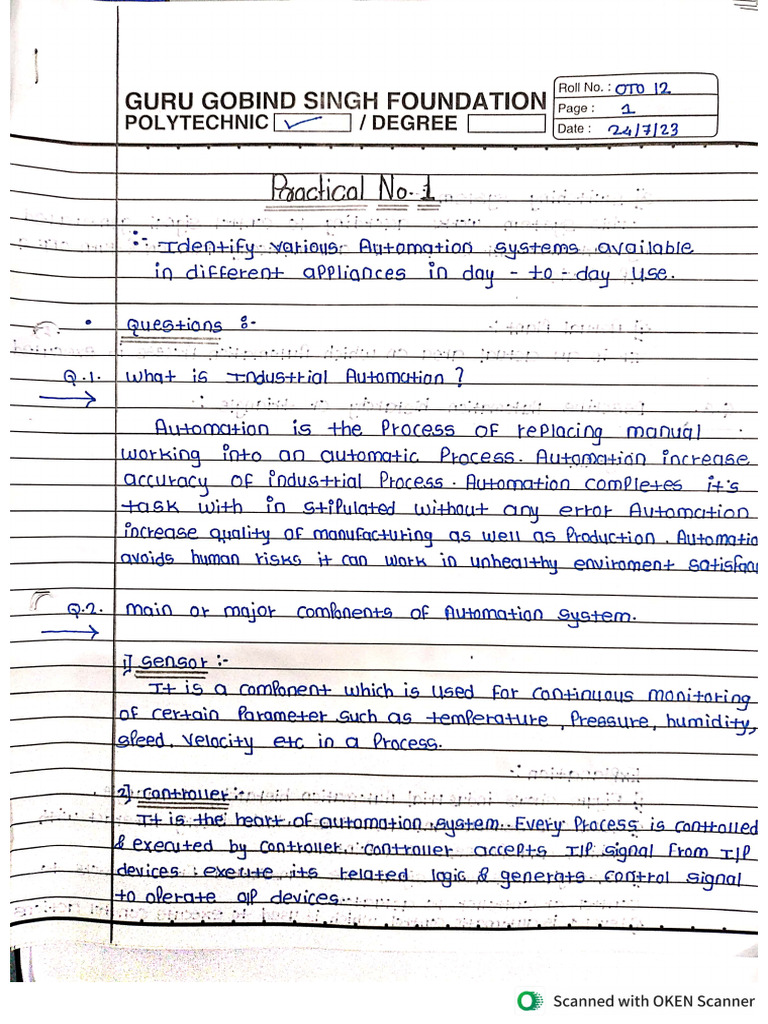 GURU GOBIND SINGH FOUNDATION
POLYTECHNIC ✓ / DEGREE
Roll No. : OTO 12
Page : 1
Date : 24/7/23
Practical No. 1
:- Identify various Automation systems available
in different appliances in day - to - day use.
• Questions :-
Q.1. What is Industrial Automation ?
Automation is the Process of replacing manual
working into an automatic Process. Automation increase
accuracy of industrial Process. Automation completes it's
task with in stipulated without any error Automation
increase quality of manufacturing as well as Production. Automatio
avoids human risks it can work in unhealthy enviroment satisfac
Q.2. main or major components of Automation system.
1] Sensor :-
It is a component which is used for continuous monitoring
of certain Parameter such as temperature, Pressure, humidity,
speed, velocity etc in a Process.
2] controller :-
It is the heart of automation system. Every Process is controlled
& executed by controller. controller accepts I/P signal from I/P
devices execute its related logic & generats control signal
to operate O/P devices.
Scanned with OKEN Scanner